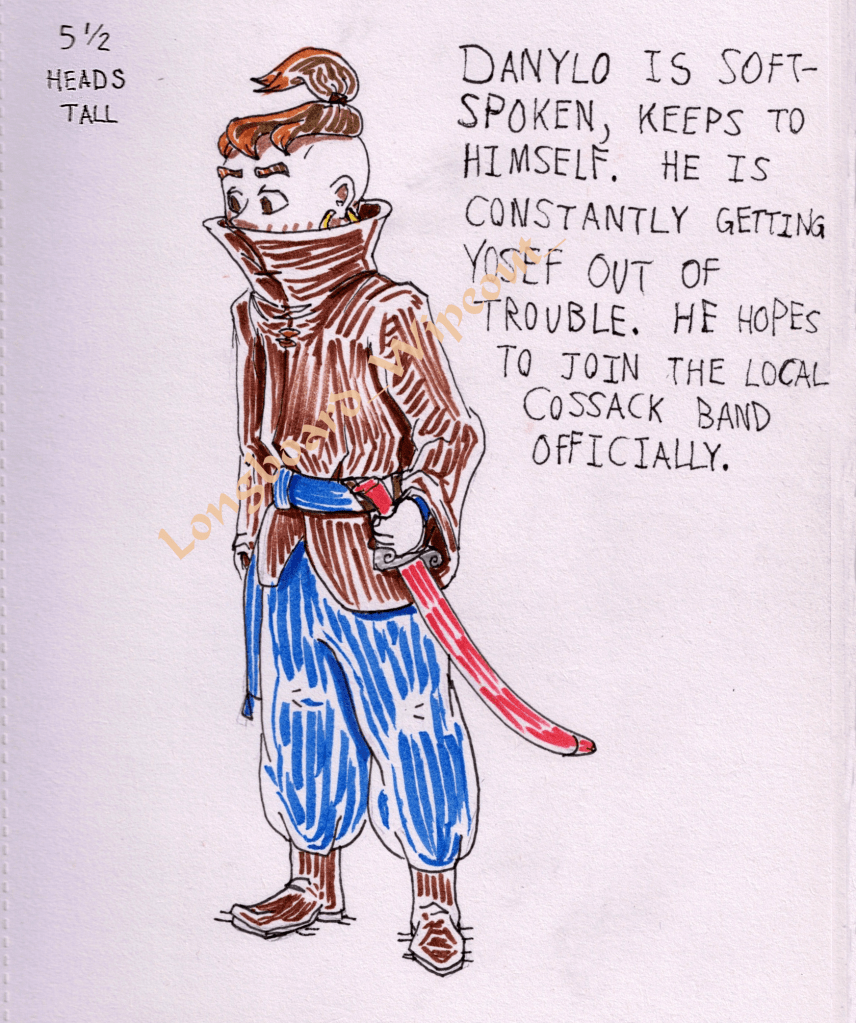 5 ½
HEADS
TALL
DANYLO IS SOFT-
SPOKEN, KEEPS TO
HIMSELF. HE IS
CONSTANTLY GETTING
YOSEF OUT OF
TROUBLE. HE HOPES
TO JOIN THE LOCAL
COSSACK BAND
OFFICIALLY.
Longboard_Wipeout_